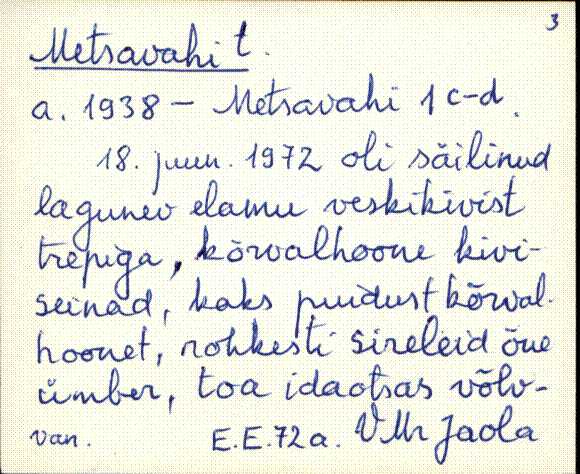 3
Metsavahi t.
a. 1938 – Metsavahi 1 c-d.
18. juun. 1972 oli säilinud
lagunev elamu veskikivist
trepiga, kõrvalhoone kivi-
seinad, kaks puidust kõrval-
hoonet, rohkesti sireleid õue
ümber, toa idaotsas võlv-
van. E.E. 72 a. VMr Jaola